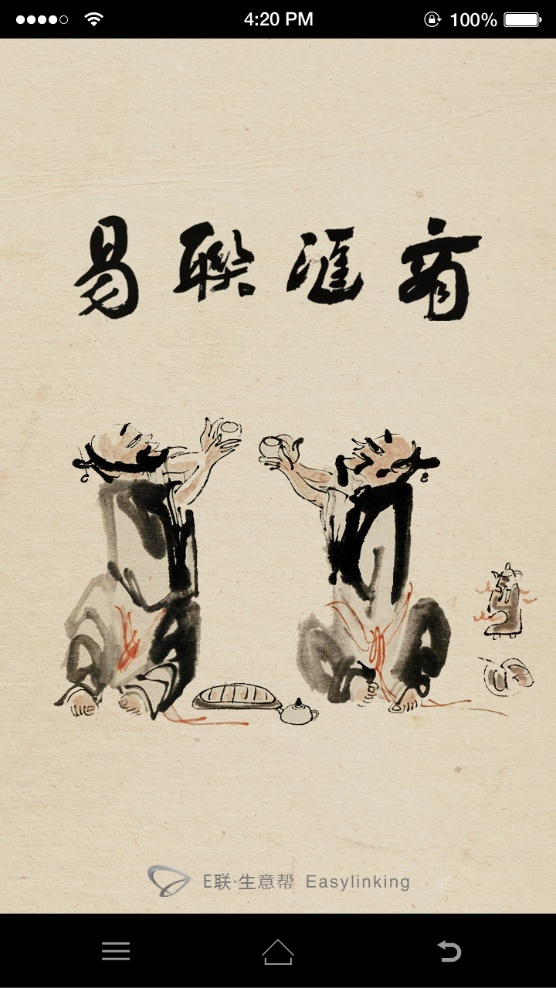 4:20 PM 100%
易聯滙商
E联·生意帮 Easylinking